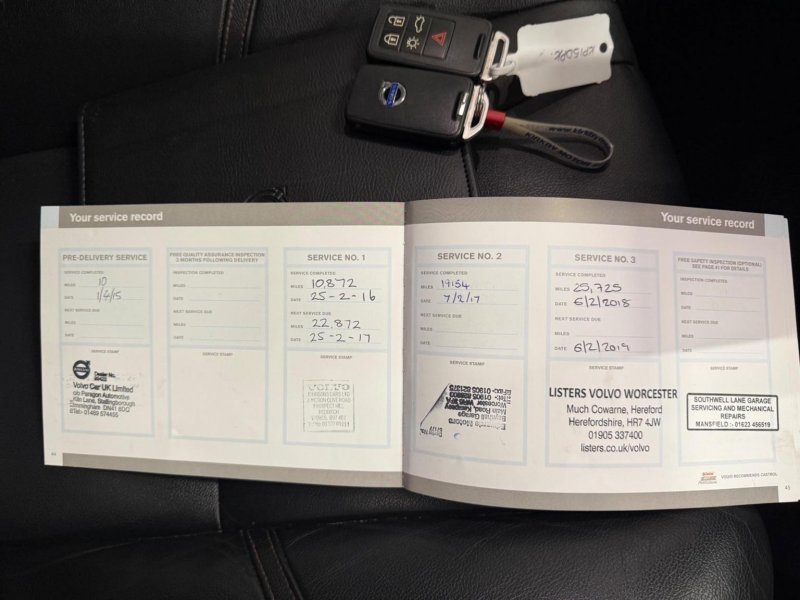 KP15DPK
KIRKBY MOTOR
VOLVO
Your service record
PRE-DELIVERY SERVICE
SERVICE COMPLETED
MILES 10
DATE 1/4/15
NEXT SERVICE DUE
MILES
DATE
SERVICE STAMP
Volvo Car UK Limited
c/o Paragon Automotive
Kiln Lane, Stallingborough
Immingham DN41 8DQ
Tel: 01469 574455
FREE QUALITY ASSURANCE INSPECTION
3-MONTHS FOLLOWING DELIVERY
INSPECTION COMPLETED
MILES
DATE
NEXT SERVICE DUE
MILES
DATE
SERVICE STAMP
SERVICE NO. 1
SERVICE COMPLETED
MILES 10,872
DATE 25-2-16
NEXT SERVICE DUE
MILES 22,872
DATE 25-2-17
SERVICE STAMP
VOLVO
Your service record
SERVICE NO. 2
SERVICE COMPLETED
MILES
DATE 7/2/17
NEXT SERVICE DUE
MILES
DATE
SERVICE STAMP
SERVICE NO. 3
SERVICE COMPLETED
MILES 25,725
DATE 6/2/2018
NEXT SERVICE DUE
MILES
DATE 6/2/2019
SERVICE STAMP
LISTERS VOLVO WORCESTER
Much Cowarne, Hereford
Herefordshire, HR7 4JW
01905 337400
listers.co.uk/volvo
FREE SAFETY INSPECTION (OPTIONAL)
SEE PAGE 41 FOR DETAILS
INSPECTION COMPLETED
MILES
DATE
NEXT SERVICE DUE
MILES
DATE
SERVICE STAMP
SOUTHWELL LANE GARAGE
SERVICING AND MECHANICAL
REPAIRS
MANSFIELD :- 01623 456519
VOLVO RECOMMENDS CASTROL
45